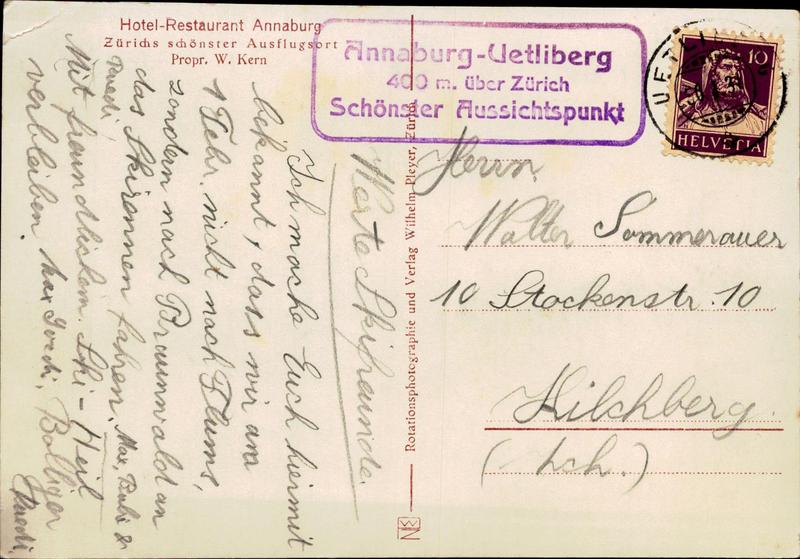 Hotel-Restaurant Annaburg
Zürichs schönster Ausflugsort
Propr. W. Kern
Annaburg-Uetliberg
400 m. über Zürich
Schönster Aussichtspunkt
UETLI
10
HELVETIA
Werte Skifreunde.
Ich mache Euch hiermit
bekannt, dass wir am
1 Febr. nicht nach Flums,
sondern nach Braunwald an
das Skirennen fahren. Max, Bubi &
Ruedi,
Mit freundlichem Ski-Heil
verbleiben Max Bolliger
Ruedi
Rotationsphotographie und Verlag Wilhelm Pleyer, Zürich
Herrn
Walter Sommerauer
10 Stockenstr. 10
Kilchberg
(Zch.)